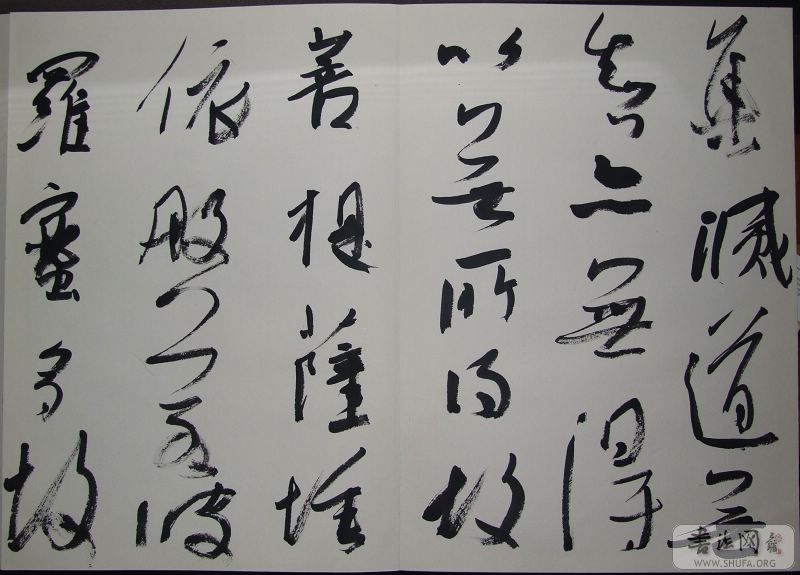 集滅道無
智亦無得
以無所得故
菩提薩埵
依般若波
羅蜜多故
書法网
WWW.SHUFA.ORG